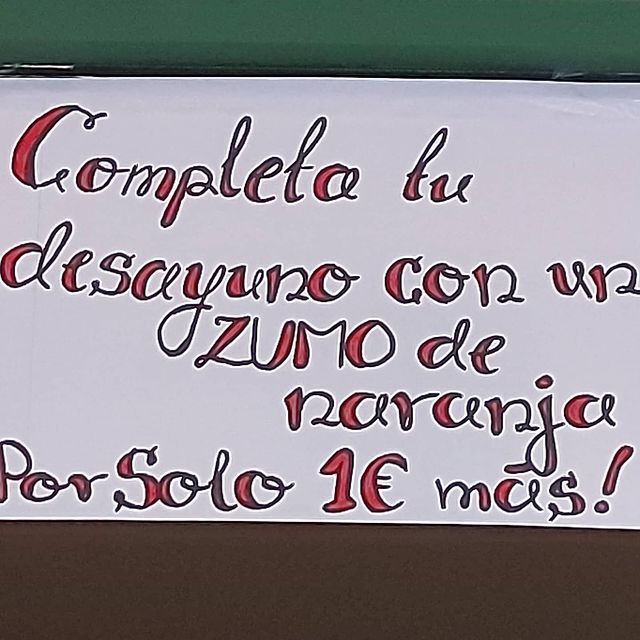 Completa tu
desayuno con un
ZUMO de
naranja
Por Solo 1€ más!